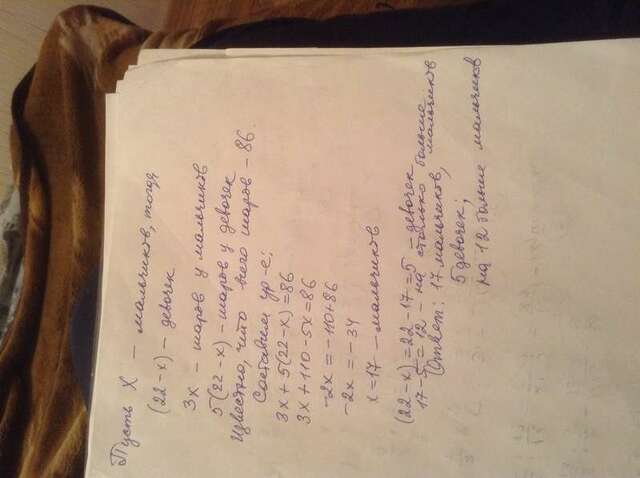 Пусть X – мальчиков, тогда
(22-x) – девочек
3x – шаров у мальчиков
5(22-x) – шаров у девочек
Известно, что всего шаров – 86.
Составим ур-е;
3x + 5(22-x) = 86
3x + 110 - 5x = 86
-2x = -110+86
-2x = -34
x = 17 – мальчиков
(22-x) = 22-17 = 5 – девочек
17-5 = 12 – на столько больше мальчиков
Ответ: 17 мальчиков,
5 девочек;
на 12 больше мальчиков